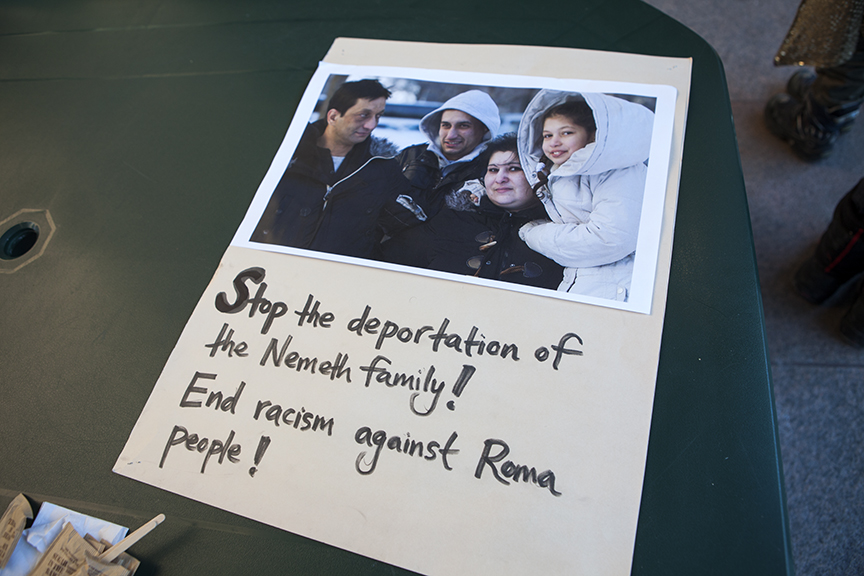 Stop the deportation of
the Nemeth family!
End racism against Roma
people!